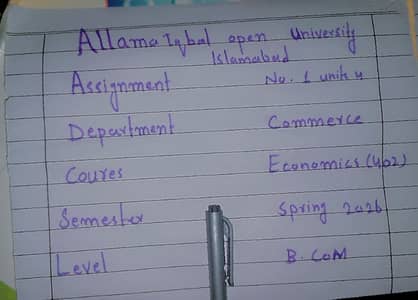 Allama Iqbal open University
Islamabad
Assignment No. 1 unit 4
Department Commerce
Coures Economics (402)
Semester Spring 2026
Level B.COM